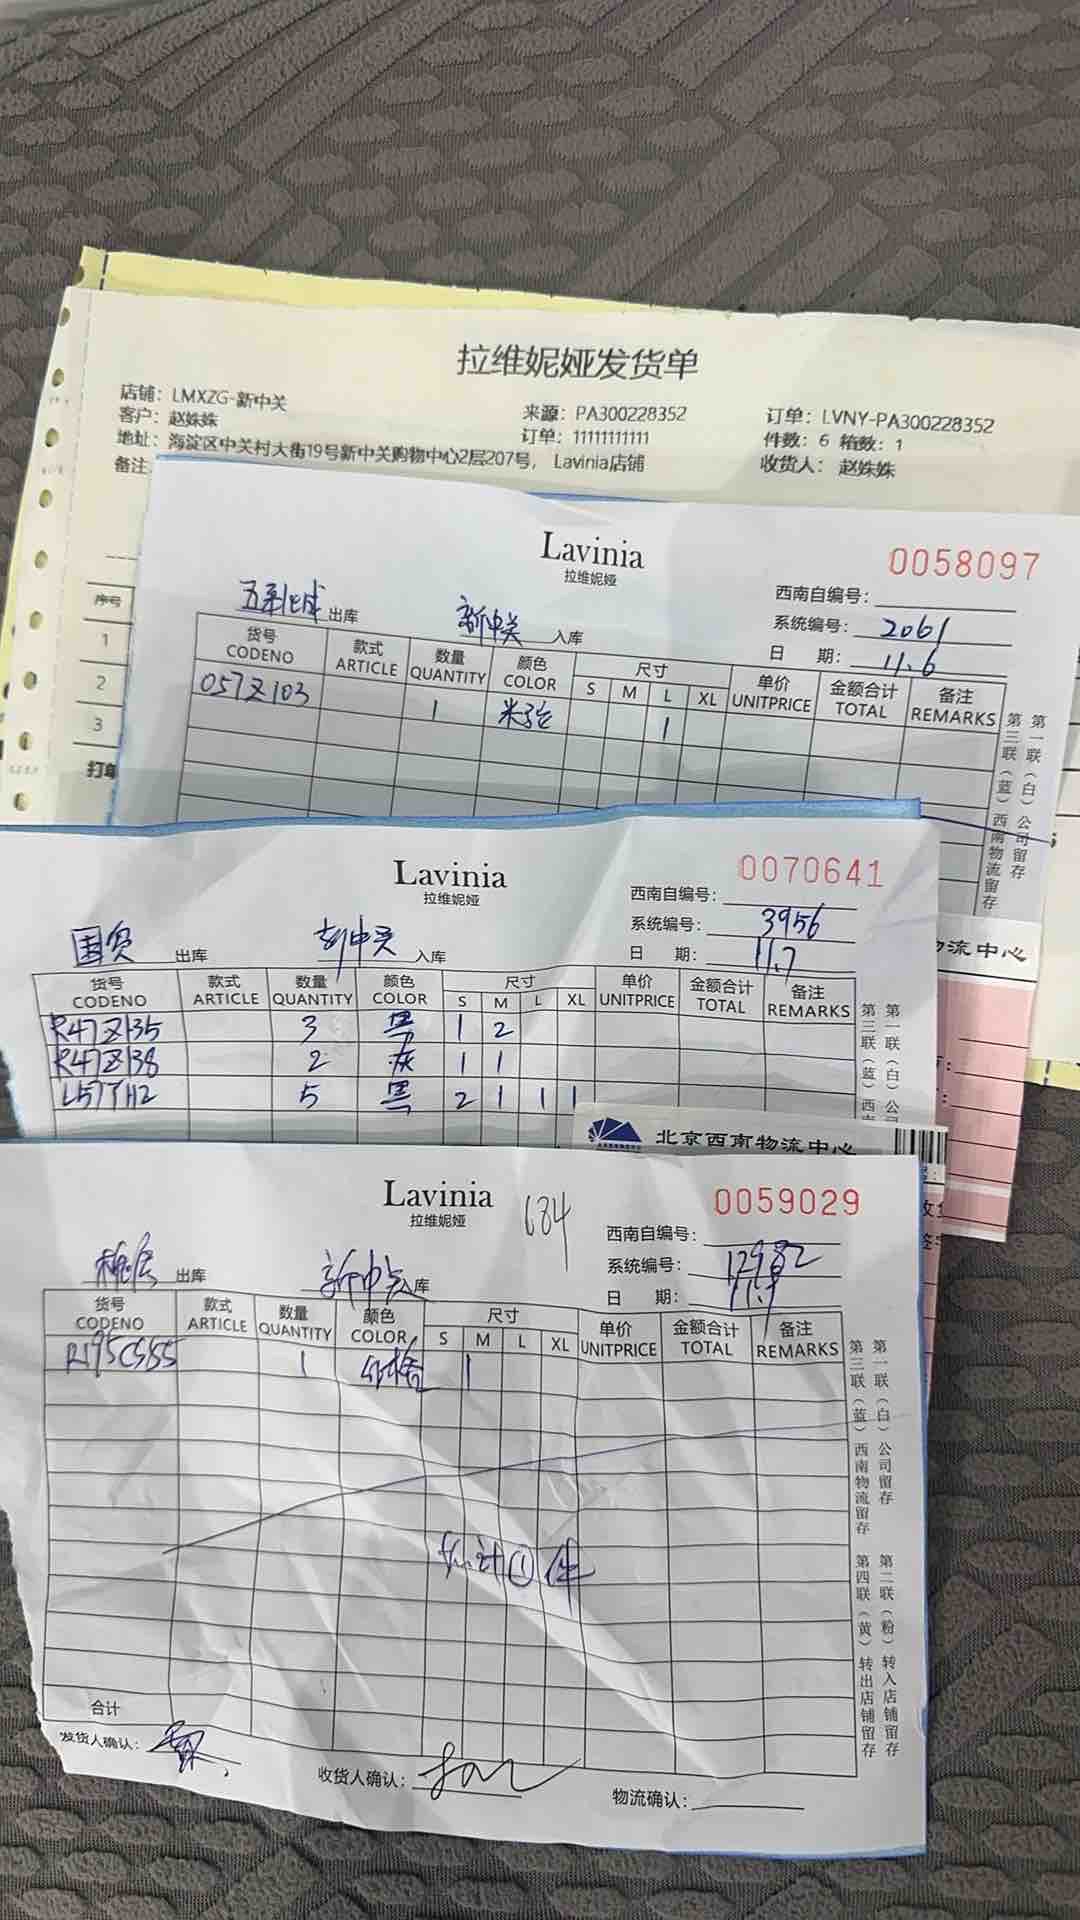 拉维妮娅发货单
店铺：LMXZG-新中关
客户：赵姝姝
来源：PA300228352
订单：11111111111
订单：LVNY-PA300228352
件数：6 箱数：1
地址：海淀区中关村大街19号新中关购物中心2层207号， Lavinia店铺
收货人：赵姝姝
备注
序号
1
2
3
打单
Lavinia
拉维妮娅
0058097
西南自编号：
系统编号：2061
日 期：11.6
出库 新中关 入库
货号 款式 数量 颜色 尺寸 单价 金额合计 备注
CODENO ARTICLE QUANTITY COLOR S M L XL UNITPRICE TOTAL REMARKS
057Z103 1 1
第一联（白）公司留存
第三联（蓝）西南物流留存
物流中心
Lavinia
拉维妮娅
0070641
西南自编号：
系统编号：3956
日 期：11.7
国贸 出库 新中关 入库
货号 款式 数量 颜色 尺寸 单价 金额合计 备注
CODENO ARTICLE QUANTITY COLOR S M L XL UNITPRICE TOTAL REMARKS
R47Z135 3 黑 1 2
R47Z138 2 灰 1 1
L57TH2 5 黑 2 1 1 1
第一联（白）公
第三联（蓝）西
北京西南物流中心
Lavinia
拉维妮娅
684
0059029
西南自编号：
系统编号：12982
日 期：11.9
出库 新中关 入库
货号 款式 数量 颜色 尺寸 单价 金额合计 备注
CODENO ARTICLE QUANTITY COLOR S M L XL UNITPRICE TOTAL REMARKS
R195CS55 1 1
共计①件
合计
第一联（白）公司留存
第三联（蓝）西南物流留存
第二联（粉）转入店铺留存
第四联（黄）转出店铺留存
发货人确认：
收货人确认：
物流确认：